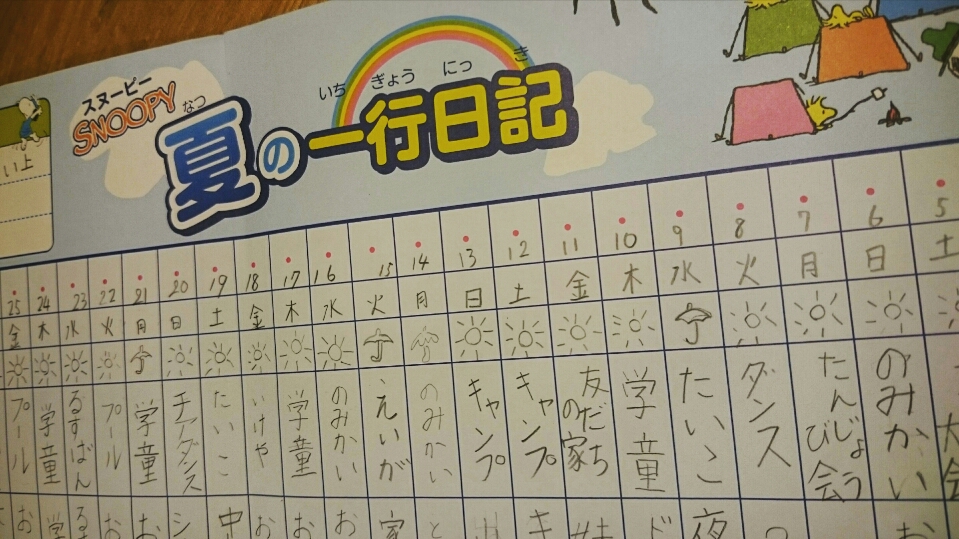 スヌーピー
SNOOPY
なつ
いち ぎょう にっ き
夏の一行日記
い上
25 24 23 22 21 20 19 18 17 16 15 14 13 12 11 10 9 8 7 6 5
金 木 水 火 月 日 土 金 木 水 火 月 日 土 金 木 水 火 月 日 土
のみかい
たんじょうび会
ダンス
たいこ
学童
友だちの家
キャンプ
キャンプ
のみかい
えいが
のみかい
学童
いけや
たいこ
チアダンス
学童
プール
るすばん
学童
プール